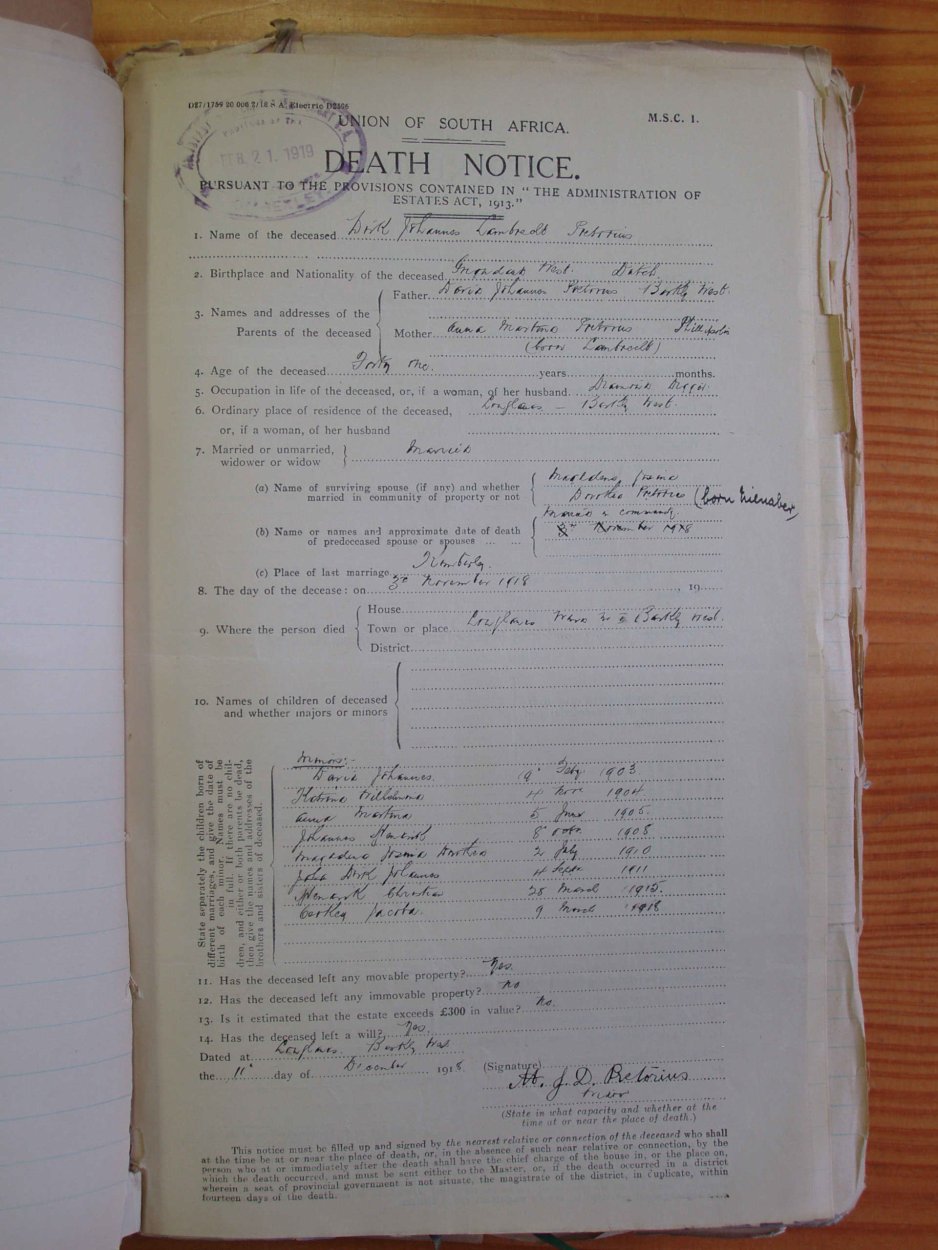 D27/1759 20 000 2/18 S.A. Electric D2596
UNION OF SOUTH AFRICA.
M.S.C. 1.
FEB. 21. 1919
DEATH NOTICE.
PURSUANT TO THE PROVISIONS CONTAINED IN "THE ADMINISTRATION OF
ESTATES ACT, 1913."
1. Name of the deceased Dirk Johannes Lambrecht Pretorius
2. Birthplace and Nationality of the deceased. West. Dutch
3. Names and addresses of the
Parents of the deceased
Father David Johannes Pretorius Barkly West.
Mother Anna Martina Pretorius Phillipolis
(born Lambrecht)
4. Age of the deceased Forty one. years months.
5. Occupation in life of the deceased, or, if a woman, of her husband. Diamond Digger
6. Ordinary place of residence of the deceased, Longlands – Barkly West
or, if a woman, of her husband
7. Married or unmarried,
widower or widow
Married
(a) Name of surviving spouse (if any) and whether
married in community of property or not
Magdalena Josina
Dorothea Pretorius (born Nienaber)
Married in community
(b) Name or names and approximate date of death
of predeceased spouse or spouses
November 1918
(c) Place of last marriage Kimberley.
8. The day of the decease: on November 1918 , 19
9. Where the person died
House
Town or place Longlands Ward Barkly West.
District
10. Names of children of deceased
and whether majors or minors
State separately the children born of
different marriages, and give the date of
birth of each minor. Names must be
in full. If there are no chil-
dren, and either or both parents be dead,
then give the names and addresses of the
brothers and sisters of deceased.
Minors:-
David Johannes. 19 Feby 1903
Katrina Wilhelmina 4 Nov 1904
Anna Martina 5 June 1905.
Johannes Hendrik 8 1908
Magdalena Josina Dorothea 2 July 1910
Dirk Johannes 4 Sept 1911
Hendrik Christian 28 March 1915.
Jacoba. 9 March 1918
11. Has the deceased left any movable property? Yes.
12. Has the deceased left any immovable property? No
13. Is it estimated that the estate exceeds £300 in value? No.
14. Has the deceased left a will? Yes.
Dated at Longlands. Barkly West
the 11 day of December 1918
(Signature)
M. J. D. Pretorius
Widow
(State in what capacity and whether at the
time at or near the place of death.)
This notice must be filled up and signed by the nearest relative or connection of the deceased who shall
at the time be at or near the place of death, or, in the absence of such near relative or connection, by the
person who at or immediately after the death shall have the chief charge of the house in, or the place on,
which the death occurred, and must be sent either to the Master, or, if the death occurred in a district
wherein a seat of provincial government is not situate, the magistrate of the district, in duplicate, within
fourteen days of the death.